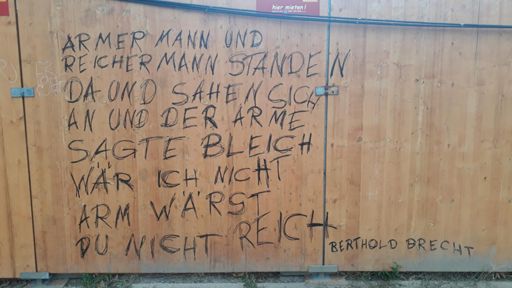 hier mieten!
ARMER MANN UND
REICHER MANN STANDEN
DA UND SAHEN SICH
AN UND DER ARME
SAGTE BLEICH
WÄR ICH NICHT
ARM WÄRST
DU NICHT REICH
BERTHOLD BRECHT